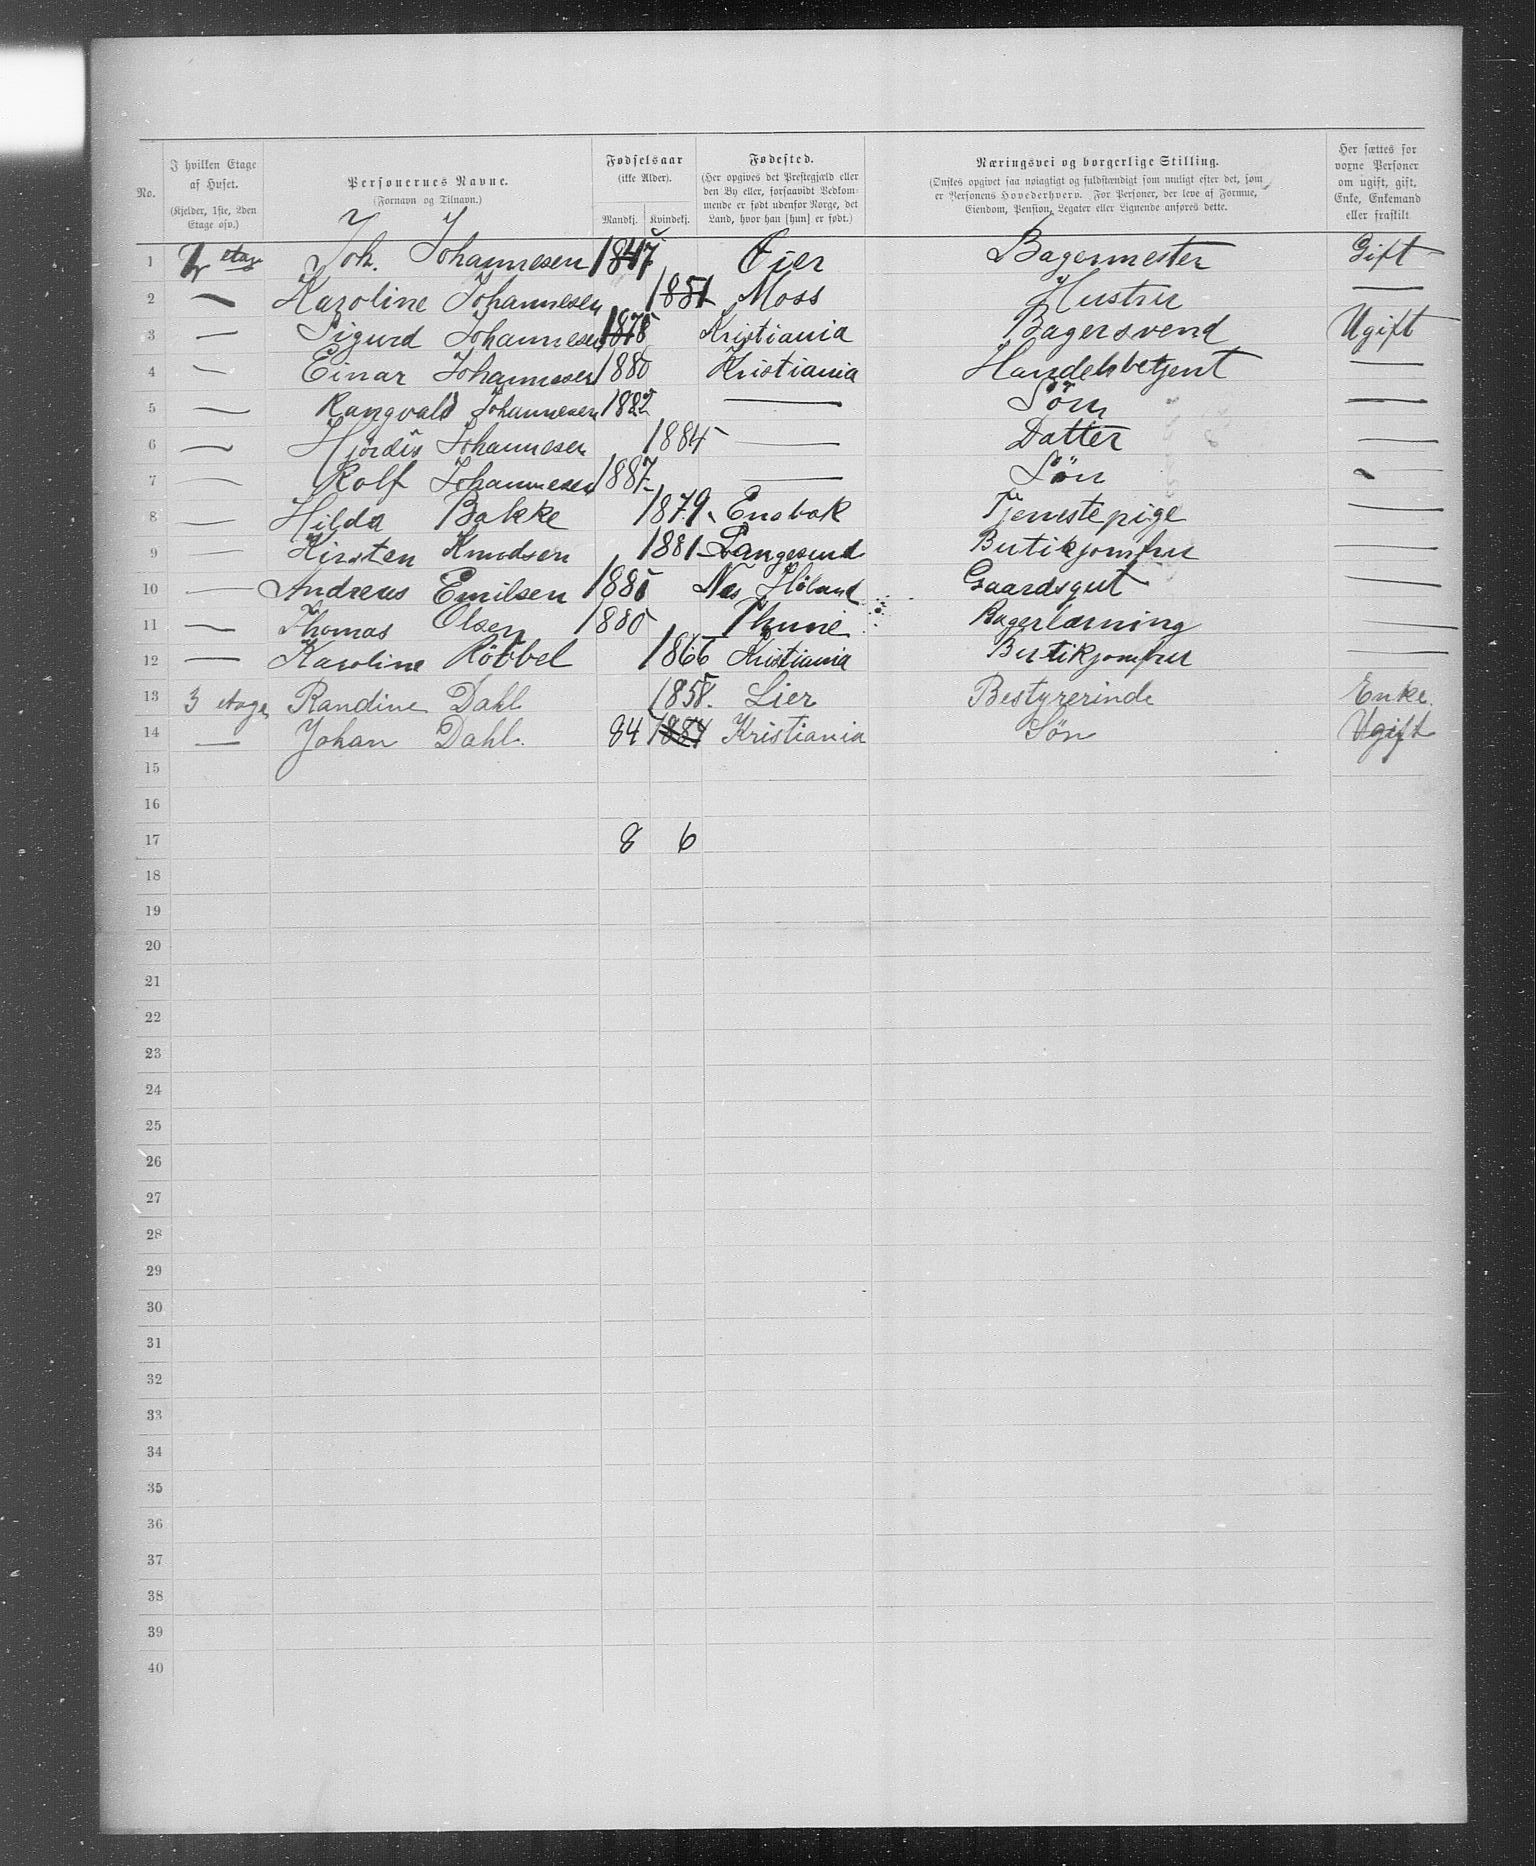 No. I hvilken Etage af Huset. (Kjelder, 1ste, 2den Etage osv.) Personernes Navne. (Fornavn og Tilnavn.) Fødselsaar (ikke Alder). Mandkj. Kvindekj. Fødested. (Her opgives det Prestegjæld eller den By eller, forsaavidt Vedkommende er født udenfor Norge, det Land, hvor han [hun] er født.) Næringsvei og borgerlige Stilling. (Ønskes opgivet saa nøiagtigt og fuldstændigt som muligt efter det, som er Personens Hovederhverv. For Personer, der leve af Formue, Eiendom, Pension, Legater eller Lignende anføres dette. Her sættes for voxne Personer om ugift, gift, Enke, Enkemand eller fraskilt
1 2 etage Joh. Johannesen 1847 Öier Bagermester Gift
2 — Karoline Johannesen 1851 Moss Hustru —
3 — Sigurd Johannesen 1878 Kristiania Bagersvend Ugift
4 — Einar Johannesen 1880 Kristiania Handelsbetjent —
5 — Rangvald Johannesen 1882 — Sön —
6 — Hjördis Johannesen 1884 — Datter —
7 — Rolf Johannesen 1887 — Sön -
8 — Hilda Bakke 1879 Enebak Tjenestepige —
9 — Kirsten Knudsen 1881 Langesund Butikjomfru —
10 — Andreas Emilsen 1881 Nes Höland Gaardsgut —
11 — Thomas Olsen 1880 Thune Bagerlærning —
12 — Karoline Röbbel 1866 Kristiania Butikjomfru —
13 3 etage Randine Dahl 1858. Lier Bestyrerinde Enke.
14 — Johan Dahl. 84 1884 Kristiania Sön Ugift
15
16
17 8 6
18
19
20
21
22
23
24
25
26
27
28
29
30
31
32
33
34
35
36
37
38
39
40